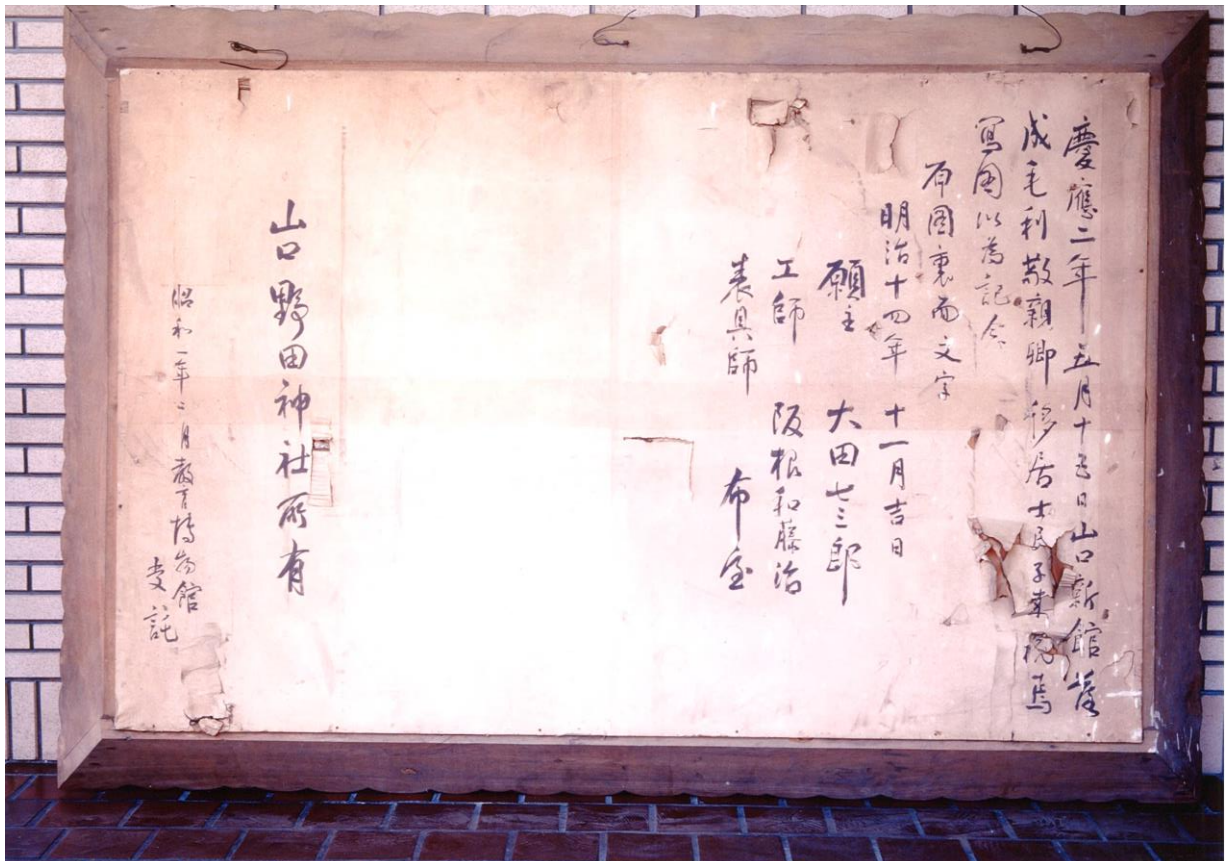 慶應二年 五月十五日山口新館落
成毛利敬親卿 移居士民子来祝焉
寫図以為記念
原図裏面文字
明治十四年 十一月吉日
願主 大田七三郎
工師 阪根和藤治
表具師 布屋
山口野田神社所有
昭和一年二月教育博物館
受託